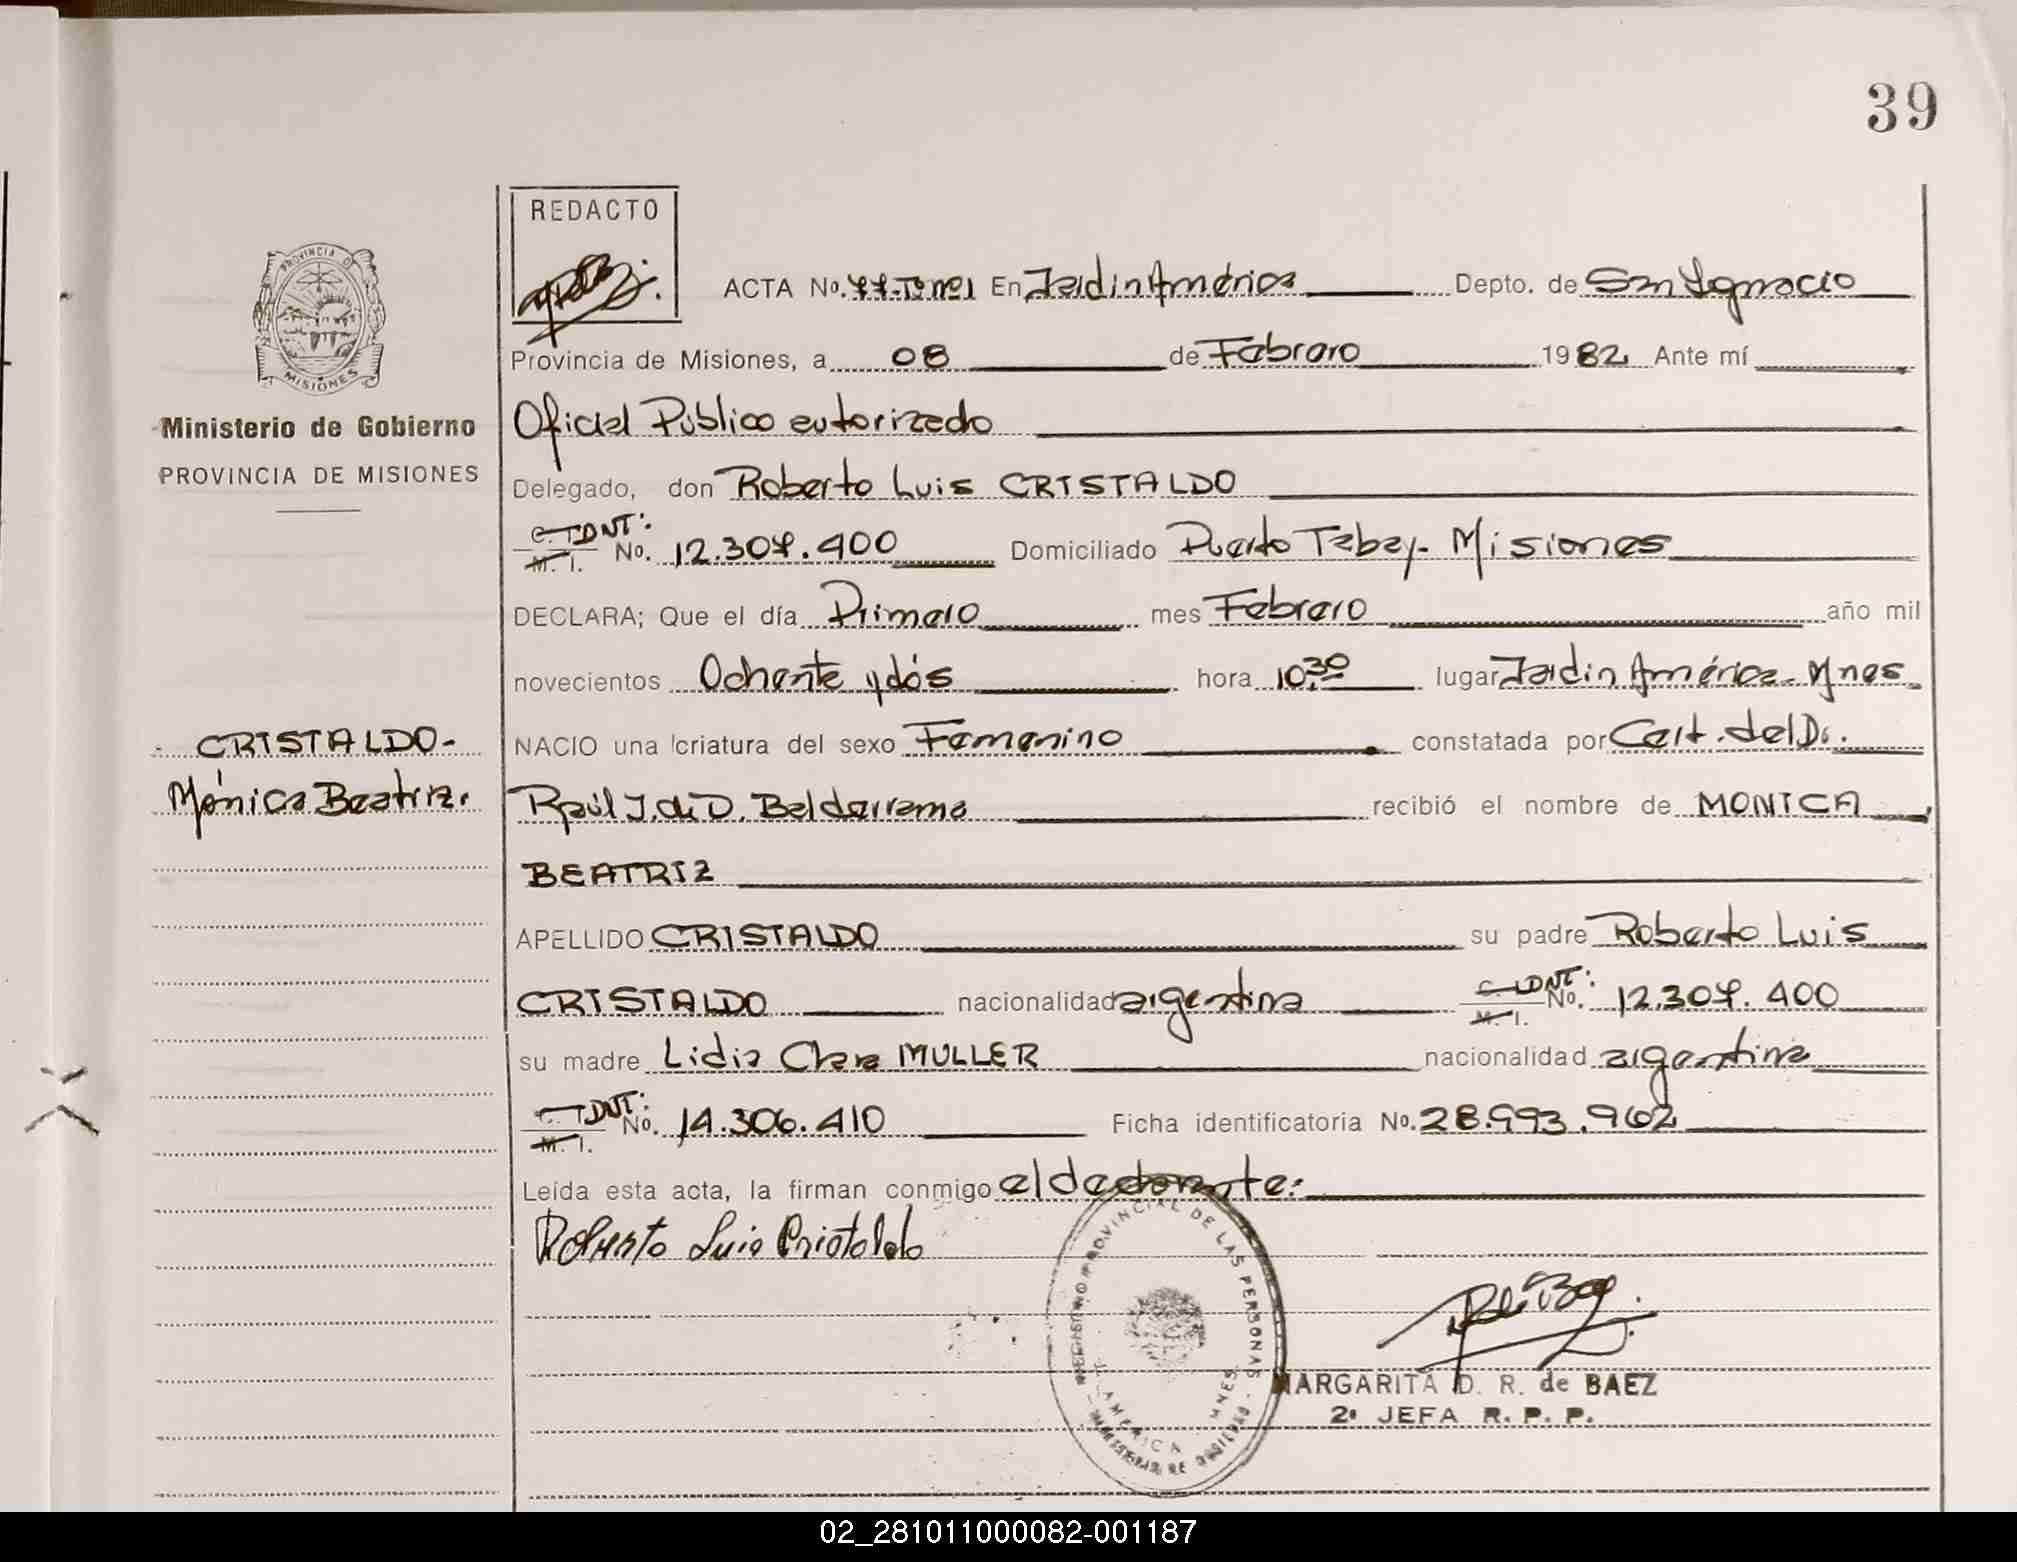 39
REDACTO
PROVINCIA D
MISIONES
Ministerio de Gobierno
PROVINCIA DE MISIONES
ACTA No. 77-Tº nº1 En Jardin América Depto. de San Ignacio
Provincia de Misiones, a 08 de Febrero 1982 Ante mí
Oficial Público autorizado
Delegado, don Roberto Luis CRISTALDO
C. I. DNI: M. I. No. 12.307.400 Domiciliado Puerto Tabay- Misiones
DECLARA; Que el día Primero mes Febrero año mil
novecientos Ochenta y dós hora 10,30 lugar Jardin América- Mnes
NACIO una criatura del sexo Femenino constatada por Cert. del Dr.
Raúl J. de D. Balderrama recibió el nombre de MONICA
BEATRIZ
CRISTALDO-
Mónica Beatriz.
APELLIDO CRISTALDO su padre Roberto Luis
CRISTALDO nacionalidad argentina C. I. DNI: M. I. No. 12.307.400
su madre Lidia Clara MULLER nacionalidad argentina
C. I. DNI: M. I. No. 14.306.410 Ficha identificatoria No. 28.993.962
Leída esta acta, la firman conmigo el declarante:
Roberto Luis Cristaldo
REGISTRO PROVINCIAL DE LAS PERSONAS - MINISTERIO DE GOBIERNO
J. AMERICA MNES
MARGARITA D. R. de BAEZ
2ª JEFA R. P. P.
02_281011000082-001187